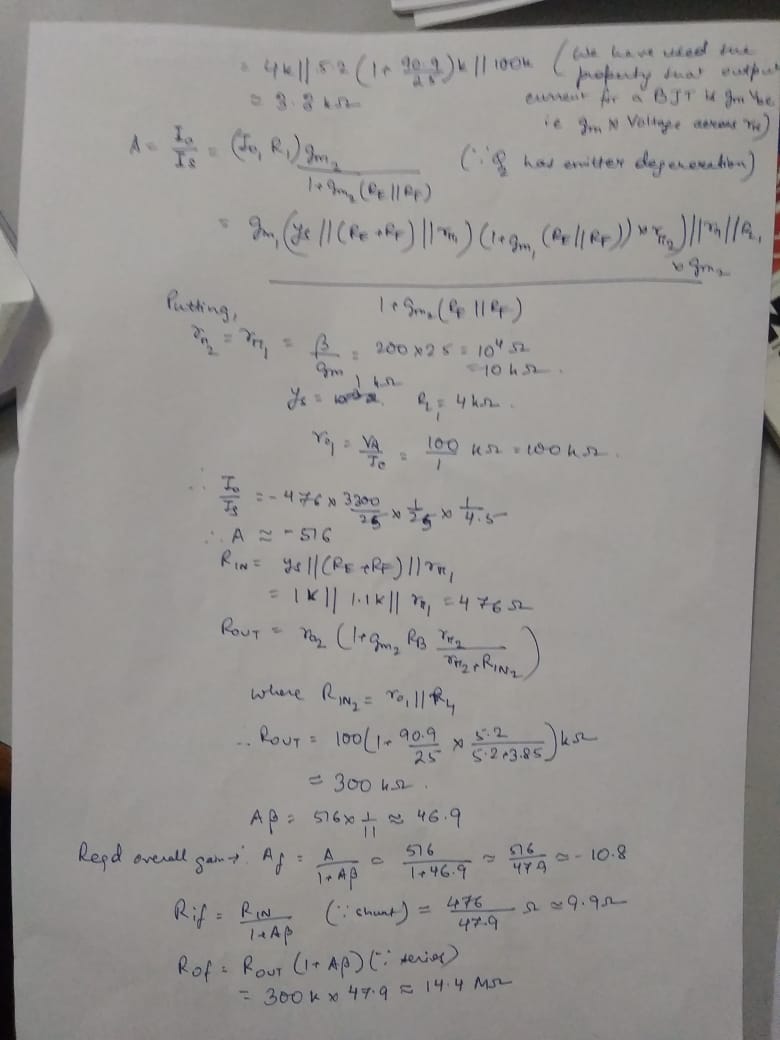 = 4k || 5.2 (1 + 90.9/25)k || 100k (We have used the
property that output
≈ 3.3 kΩ
current for a BJT is gm Vbe
ie gm × Voltage across rπ)
A = Io/Is = (Io, R1) gm2 / 1+gm2 (RE||RF) (∵ Q2 has emitter degeneration)
= gm1 (ys || (RE+RF) || rπ1) (1+gm1 (RE||RF)) × rπ2) || r01 || RL1 × gm2 / 1+gm2 (RE||RF)
Putting,
rπ2 = rπ1 = β/gm = 200×25 = 10⁴ Ω
= 10 kΩ.
ys = 1 kΩ RL1 = 4 kΩ.
ro1 = VA/Ic = 100/1 kΩ = 100 kΩ.
∴ Io/Is = -476 × 3300/25 × 1/25 × 1/4.5
∴ A ≈ -516
RIN = ys || (RE+RF) || rπ1
= 1K || 1.1K || rπ1 = 476 Ω
ROUT = ro2 (1+gm2 RB rπ2/rπ2+RIN2)
where RIN2 = ro1 || RL1
∴ ROUT = 100(1+ 90.9/25 × 5.2/5.2+3.85) kΩ
= 300 kΩ.
Aβ = 516 × 1/11 ≈ 46.9
Reqd overall gain → Af = A/1+Aβ = 516/1+46.9 ≈ 516/47.9 ≈ -10.8
Rif = RIN/1+Aβ (∵ shunt) = 476/47.9 Ω ≈ 9.9Ω
Rof = ROUT (1+Aβ) (∵ series)
= 300 K × 47.9 ≈ 14.4 MΩ